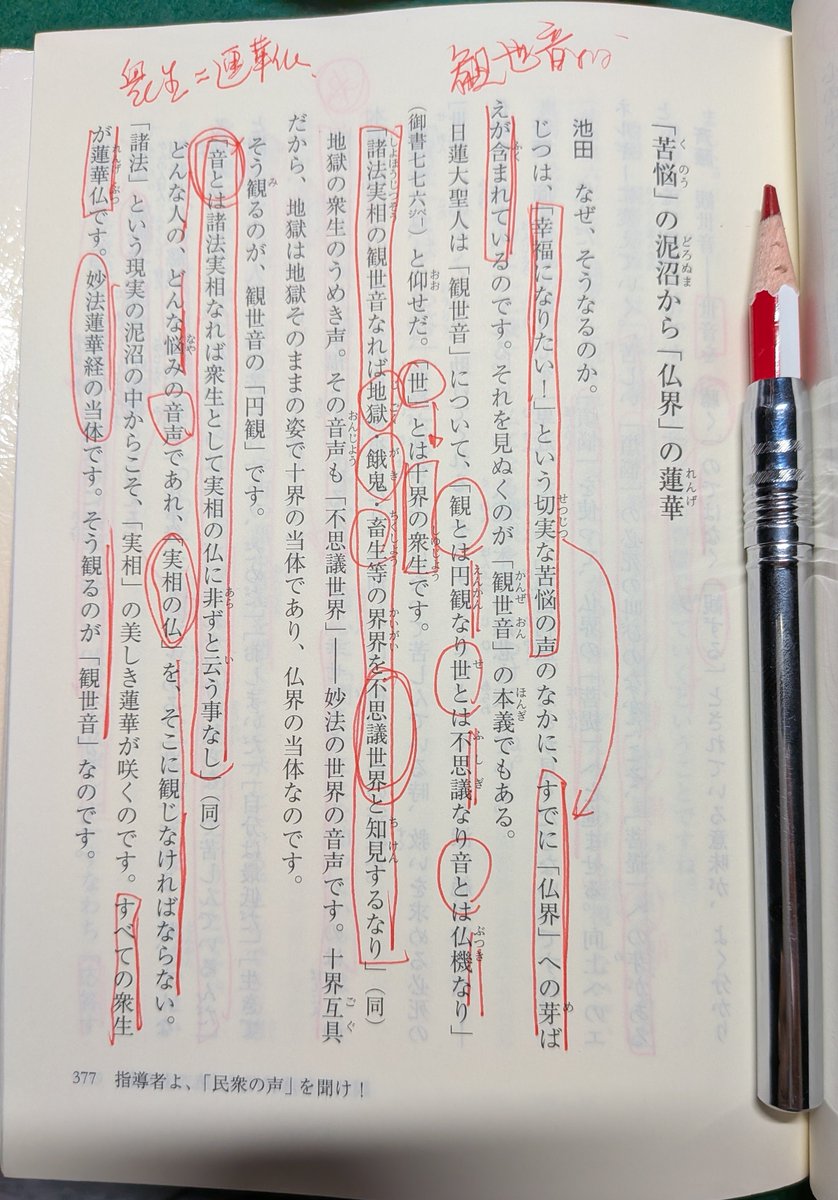 観世音
衆生=蓮華仏
「苦悩」の泥沼から「仏界」の蓮華
池田　なぜ、そうなるのか。
じつは、「幸福になりたい！」という切実な苦悩の声のなかに、すでに「仏界」への芽ば
えが含まれているのです。それを見ぬくのが「観世音」の本義でもある。
日蓮大聖人は「観世音」について、「観とは円観なり世とは不思議なり音とは仏機なり」
（御書七七六㌻）と仰せだ。「世」とは十界の衆生です。
「諸法実相の観世音なれば地獄・餓鬼・畜生等の界界を不思議世界と知見するなり」（同）
地獄の衆生のうめき声。その音声も「不思議世界」――妙法の世界の音声です。十界互具
だから、地獄は地獄そのままの姿で十界の当体であり、仏界の当体なのです。
そう観るのが、観世音の「円観」です。
「音とは諸法実相なれば衆生として実相の仏に非ずと云う事なし」（同）
どんな人の、どんな悩みの音声であれ、「実相の仏」を、そこに観じなければならない。
「諸法」という現実の泥沼の中からこそ、「実相」の美しき蓮華が咲くのです。すべての衆生
が蓮華仏です。妙法蓮華経の当体です。そう観るのが「観世音」なのです。
377　指導者よ、「民衆の声」を聞け！